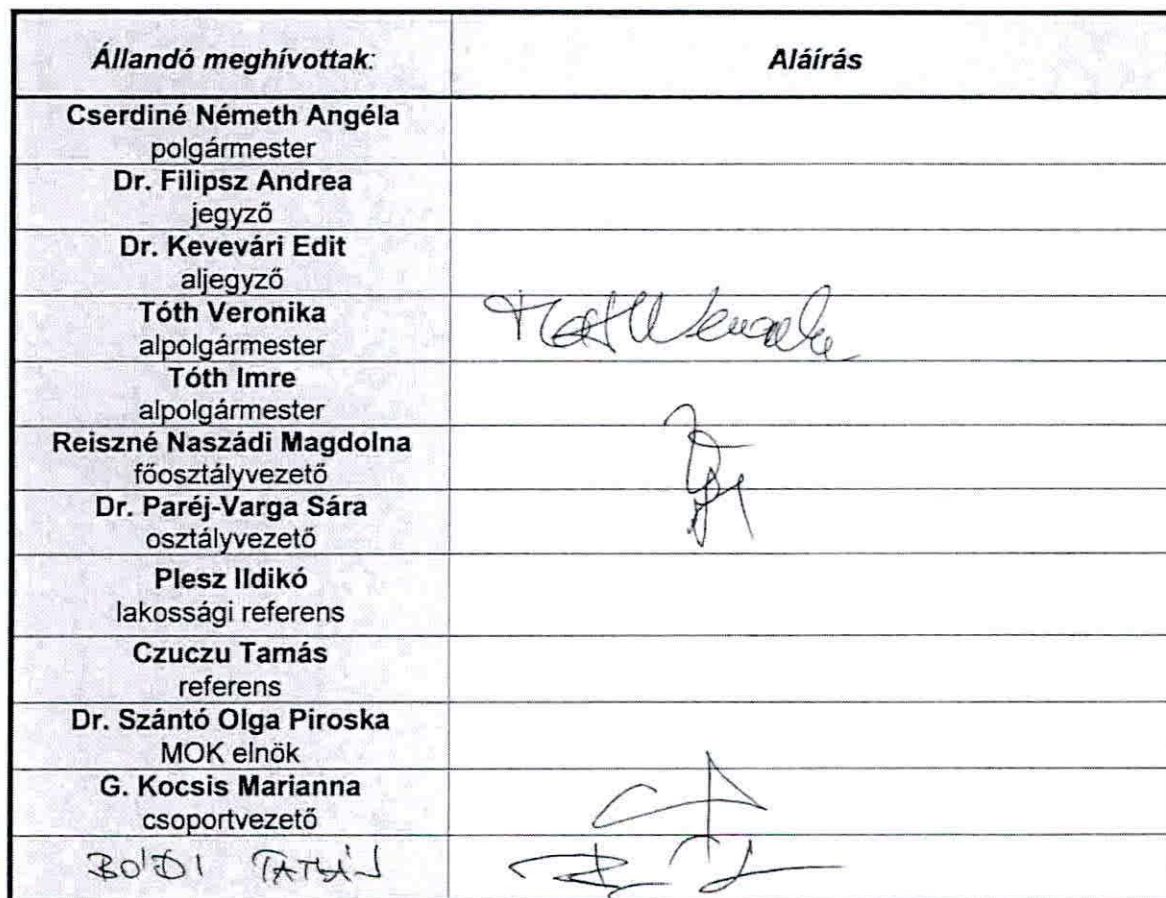 Állandó meghívottak: Aláírás
Cserdiné Németh Angéla
polgármester
Dr. Filipsz Andrea
jegyző
Dr. Kevevári Edit
aljegyző
Tóth Veronika
alpolgármester
Tóth Imre
alpolgármester
Reiszné Naszádi Magdolna
főosztályvezető
Dr. Paréj-Varga Sára
osztályvezető
Plesz Ildikó
lakossági referens
Czuczu Tamás
referens
Dr. Szántó Olga Piroska
MOK elnök
G. Kocsis Marianna
csoportvezető